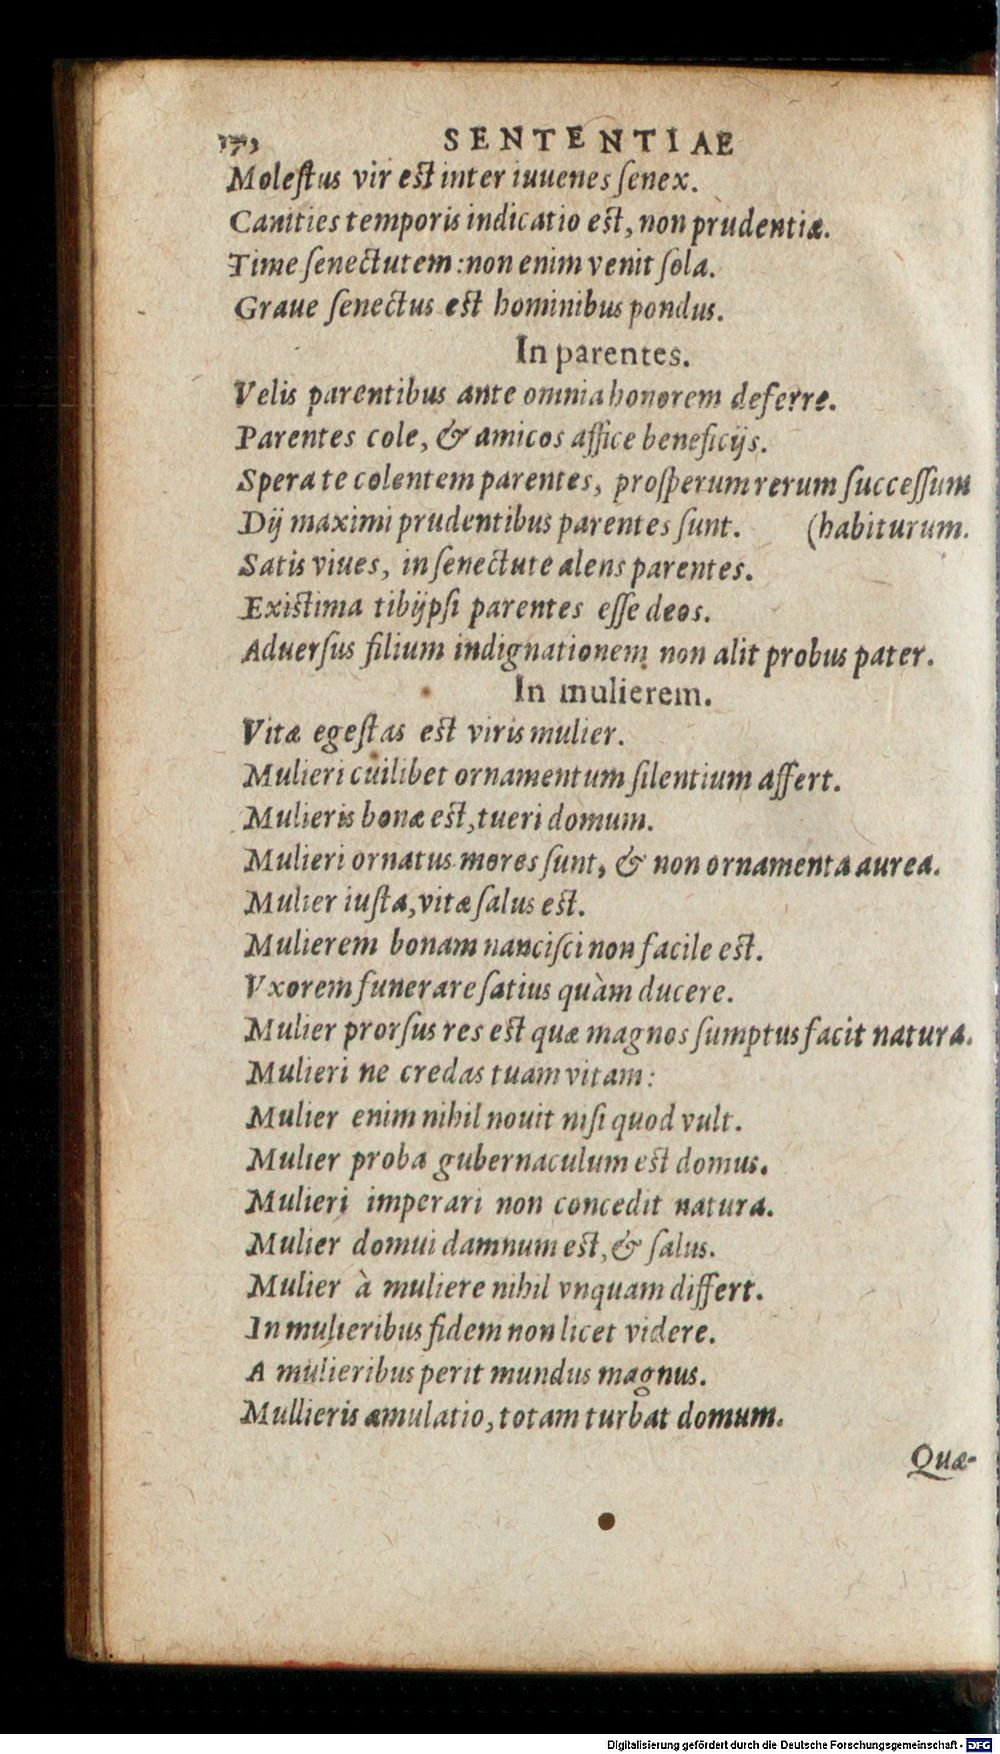 SENTENTIAE
Moleſtus vir est inter iuuenes ſenex.
Canities temporis indicatio est, non prudentiæ.
Time ſenectutem: non enim venit ſola.
Graue ſenectus est hominibus pondus.
In parentes.
Velis parentibus ante omnia honorem deferre.
Parentes cole, & amicos affice beneficijs.
Spera te colentem parentes, proſperum rerum ſucceſſum
Dij maximi prudentibus parentes ſunt. (habiturum.
Satis viues, in ſenectute alens parentes.
Existima tibijpſi parentes eſſe deos.
Aduerſus filium indignationem non alit probus pater.
In mulierem.
Vitæ egeſtas est viris mulier.
Mulieri cuilibet ornamentum ſilentium affert.
Mulieris bonæ est, tueri domum.
Mulieri ornatus mores ſunt, & non ornamenta aurea.
Mulier iuſta, vitæ ſalus est.
Mulierem bonam nanciſci non facile est.
Vxorem funerare ſatius quàm ducere.
Mulier prorſus res est quæ magnos ſumptus facit natura.
Mulieri ne credas tuam vitam:
Mulier enim nihil nouit niſi quod vult.
Mulier proba gubernaculum est domus.
Mulieri imperari non concedit natura.
Mulier domui damnum est, & ſalus.
Mulier à muliere nihil vnquam differt.
In mulieribus fidem non licet videre.
A mulieribus perit mundus magnus.
Mullieris æmulatio, totam turbat domum.
Quæ-
Digitalisierung gefördert durch die Deutsche Forschungsgemeinschaft - DFG